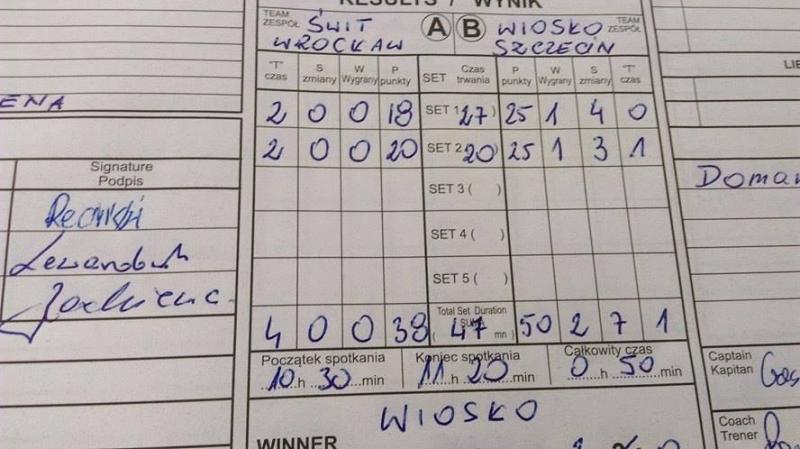 RESULTS / WYNIK
TEAM ZESPÓŁ ŚWIT WROCŁAW A B WIOSKO SZCZECIN TEAM ZESPÓŁ
"T" czas S zmiany W Wygrany P punkty SET Czas trwania P punkty W Wygrany S zmiany "T" czas
2 0 0 18 SET 1 (27) 25 1 4 0
2 0 0 20 SET 2 (20) 25 1 3 1
SET 3 ( )
SET 4 ( )
SET 5 ( )
Total Set Duration
4 0 0 38 ( 47 mn) 50 2 7 1
Początek spotkania Koniec spotkania Całkowity czas
10 h 30 min 11 h 20 min 0 h 50 min
WIOSKO
WINNER
ENA
Signature
Podpis
LI
Doma
Captain
Kapitan
Coach
Trener